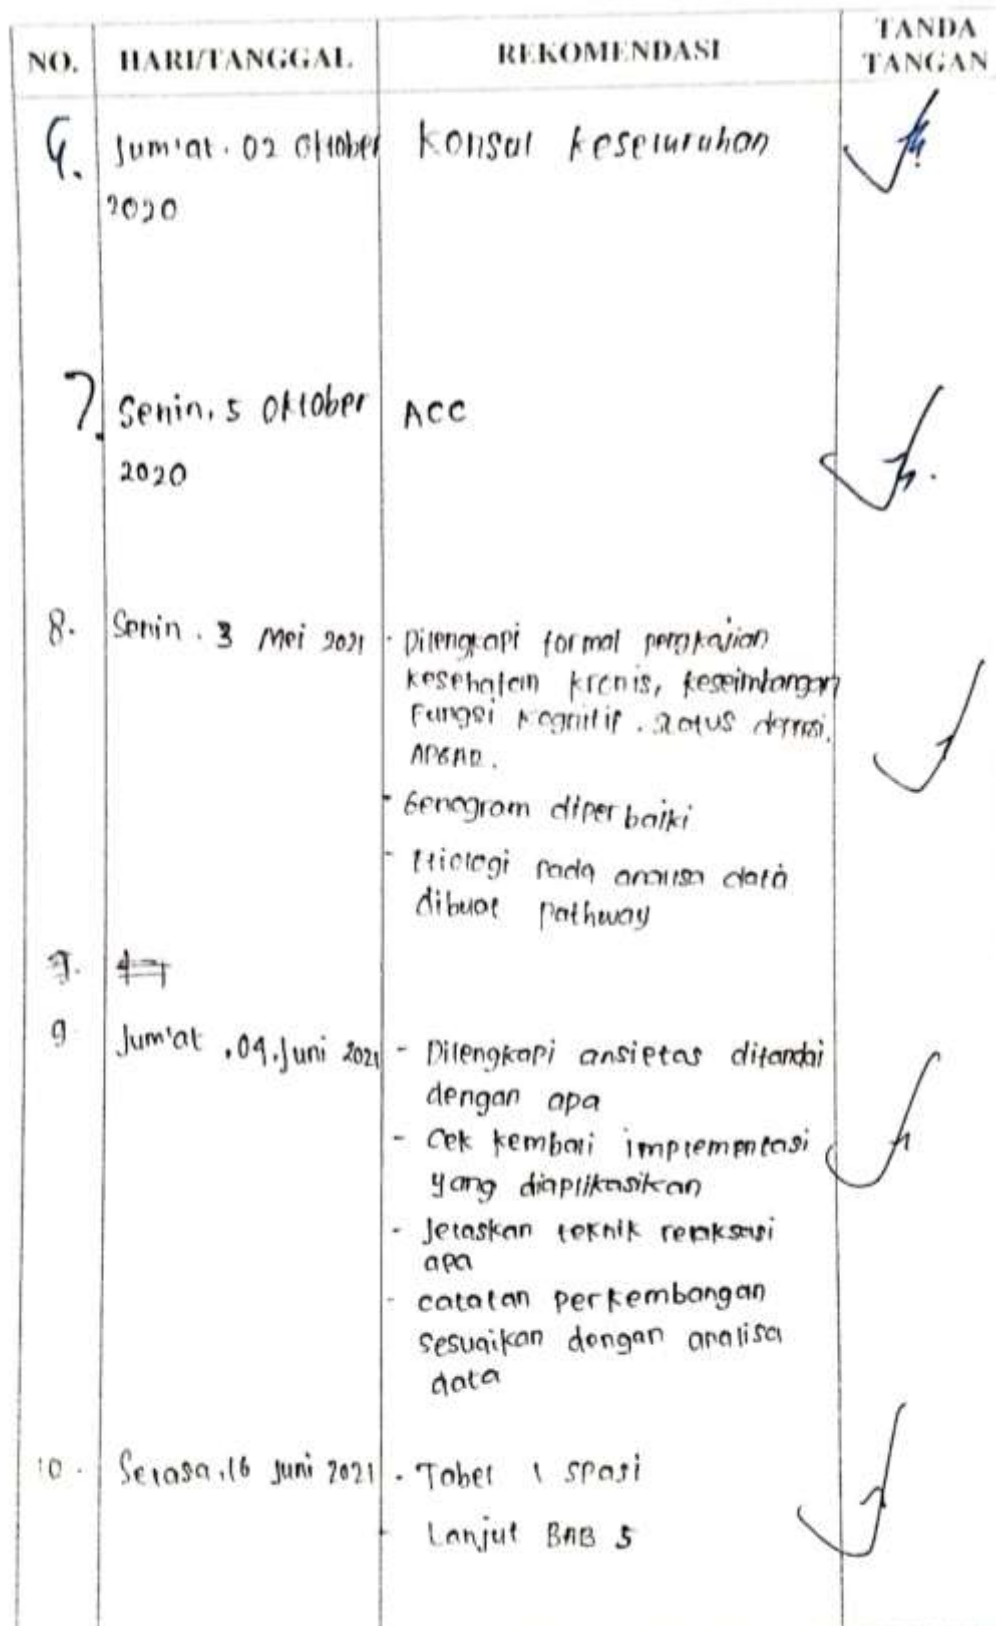 NO. HARI/TANGGAL REKOMENDASI TANDA TANGAN
6. Jum'at. 02 Oktober 2020 Konsul keseluruhan
7. Senin, 5 Oktober 2020 ACC
8. Senin. 3 Mei 2021 - Dilengkapi format pengkajian
kesehatan kronis, keseimbangan
Fungsi kognitif. Status depresi.
APGAR.
- Genogram diperbaiki
- Etiologi pada analisa data
dibuat pathway
9.
9 Jum'at, 04. Juni 2021 - Dilengkapi ansietas ditandai
dengan apa
- Cek kembali implementasi
yang diaplikasikan
- Jelaskan teknik relaksasi
apa
- catatan perkembangan
sesuaikan dengan analisa
data
10. Selasa, 16 Juni 2021 - Tabel 1 spasi
- Lanjut BAB 5